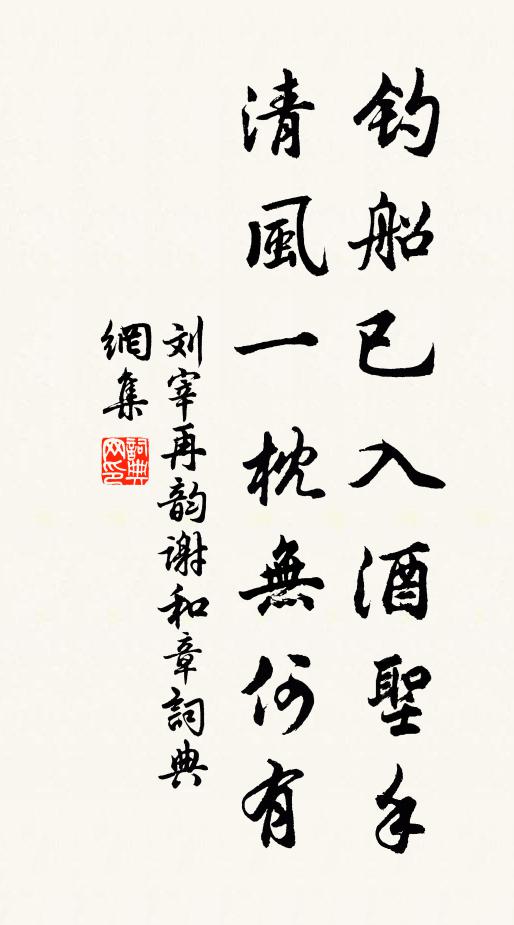 釣船已入酒聖手
清風一枕無何有
刘宰再韵謝和章詞典
網集
詞典
网印